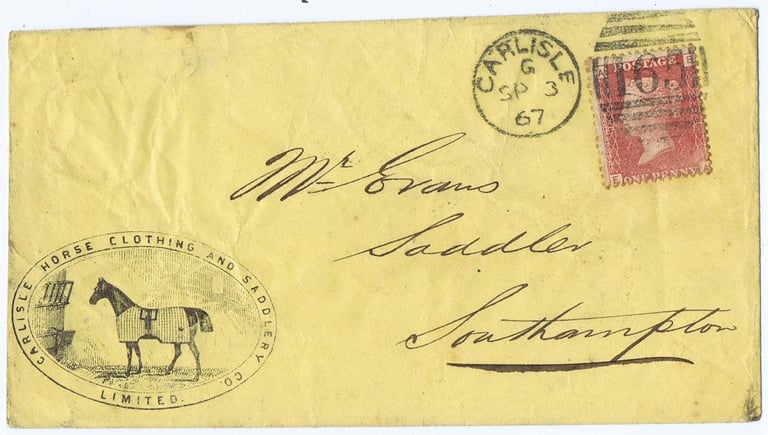 CARLISLE
G
SP 3
67
POSTAGE
ONE PENNY
Mr Evans
Saddler
Southampton
CARLISLE HORSE CLOTHING AND SADDLERY CO.
LIMITED.